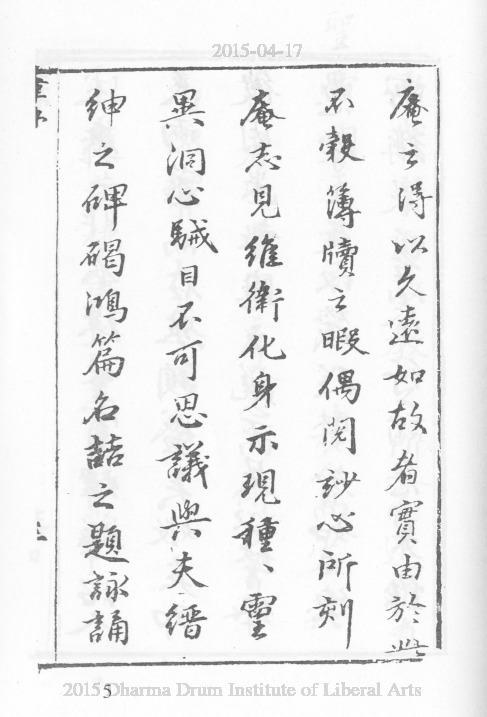 2015-04-17
庵之得以久遠如故者實由於此
不穀簿牘之暇偶閱紗心所刻
庵志見維衛化身示現種、靈
異洞心駴目不可思議與夫縉
紳之碑碣鴻篇名喆之題詠誦
2015 Dharma Drum Institute of Liberal Arts
5